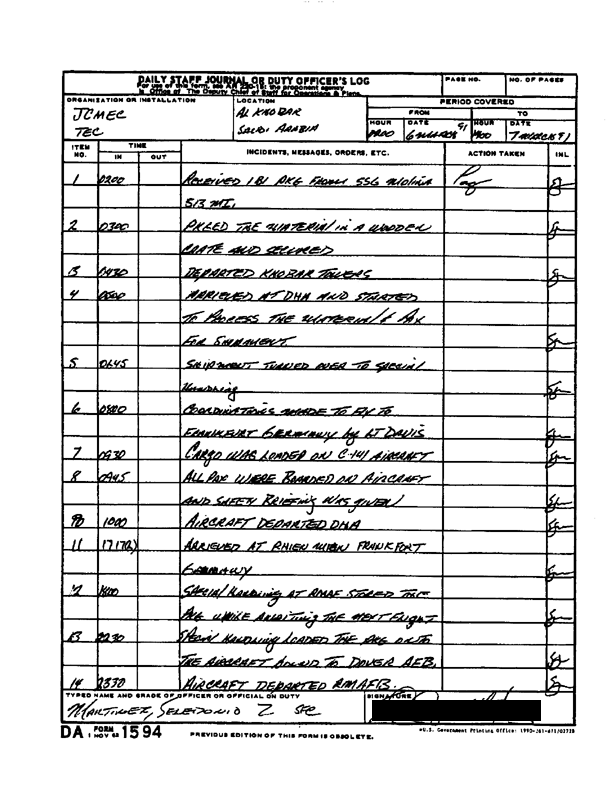 DAILY STAFF JOURNAL OR DUTY OFFICER'S LOG
For use of this form, see AR 220-15; the proponent agency
is Office of The Deputy Chief of Staff for Operations & Plans.
PAGE NO.
NO. OF PAGES
ORGANIZATION OR INSTALLATION
JCMEC
TEC
LOCATION
AL KHOBAR
SAUDI ARABIA
PERIOD COVERED
FROM
TO
HOUR
DATE
6 MARCH 91
HOUR
DATE
7 MARCH 91
ITEM NO.
TIME
IN
OUT
INCIDENTS, MESSAGES, ORDERS, ETC.
ACTION TAKEN
INL
1 0200 RECEIVED 1 BI PKG FROM SSG MOLINA
513 MI.
2 0300 PKLED THE MATERIAL IN A WOODEN
CRATE AND SECURED
3 0430 DEPARTED KHOBAR TOWERS
4 0500 ARRIEVED AT DHA AND STARTED
TO PROCESS THE MATERIAL & PAX
FOR SHIPMENT
5 0645 SHIPMENT TURNED OVER TO SPECIAL
Handling
6 0800 COORDINATIONS MADE TO FLY TO
FRANKFURT GERMANY by LT DAVIS
7 0930 CARGO WAS LOADED ON C-141 AIRCRAFT
8 0945 ALL PAX WERE BOARDED ON AIRCRAFT
AND SAFETY BRIEFING WAS GIVEN
10 1000 AIRCRAFT DEPARTED DHA
11 1717 ARRIEVED AT RHIEN MIEN FRANKFORT
GERMANY
12 1800 SPECIAL HANDLING AT RMAF STORED THE
PKG WHILE AWAITING THE NEXT FLIGHT
13 2230 SPECIAL HANDLING LOADED THE PKG ONTO
THE AIRCRAFT BOUND TO DOVER AFB.
14 2330 AIRCRAFT DEPARTED RMAFB.
TYPED NAME AND GRADE OF OFFICER OR OFFICIAL ON DUTY
MARTINEZ, SELEDONIO Z SFC
SIGNATURE
DA FORM 1594
1 NOV 62
PREVIOUS EDITION OF THIS FORM IS OBSOLETE.
*U.S. Government Printing Office: 1990-261-871/02728